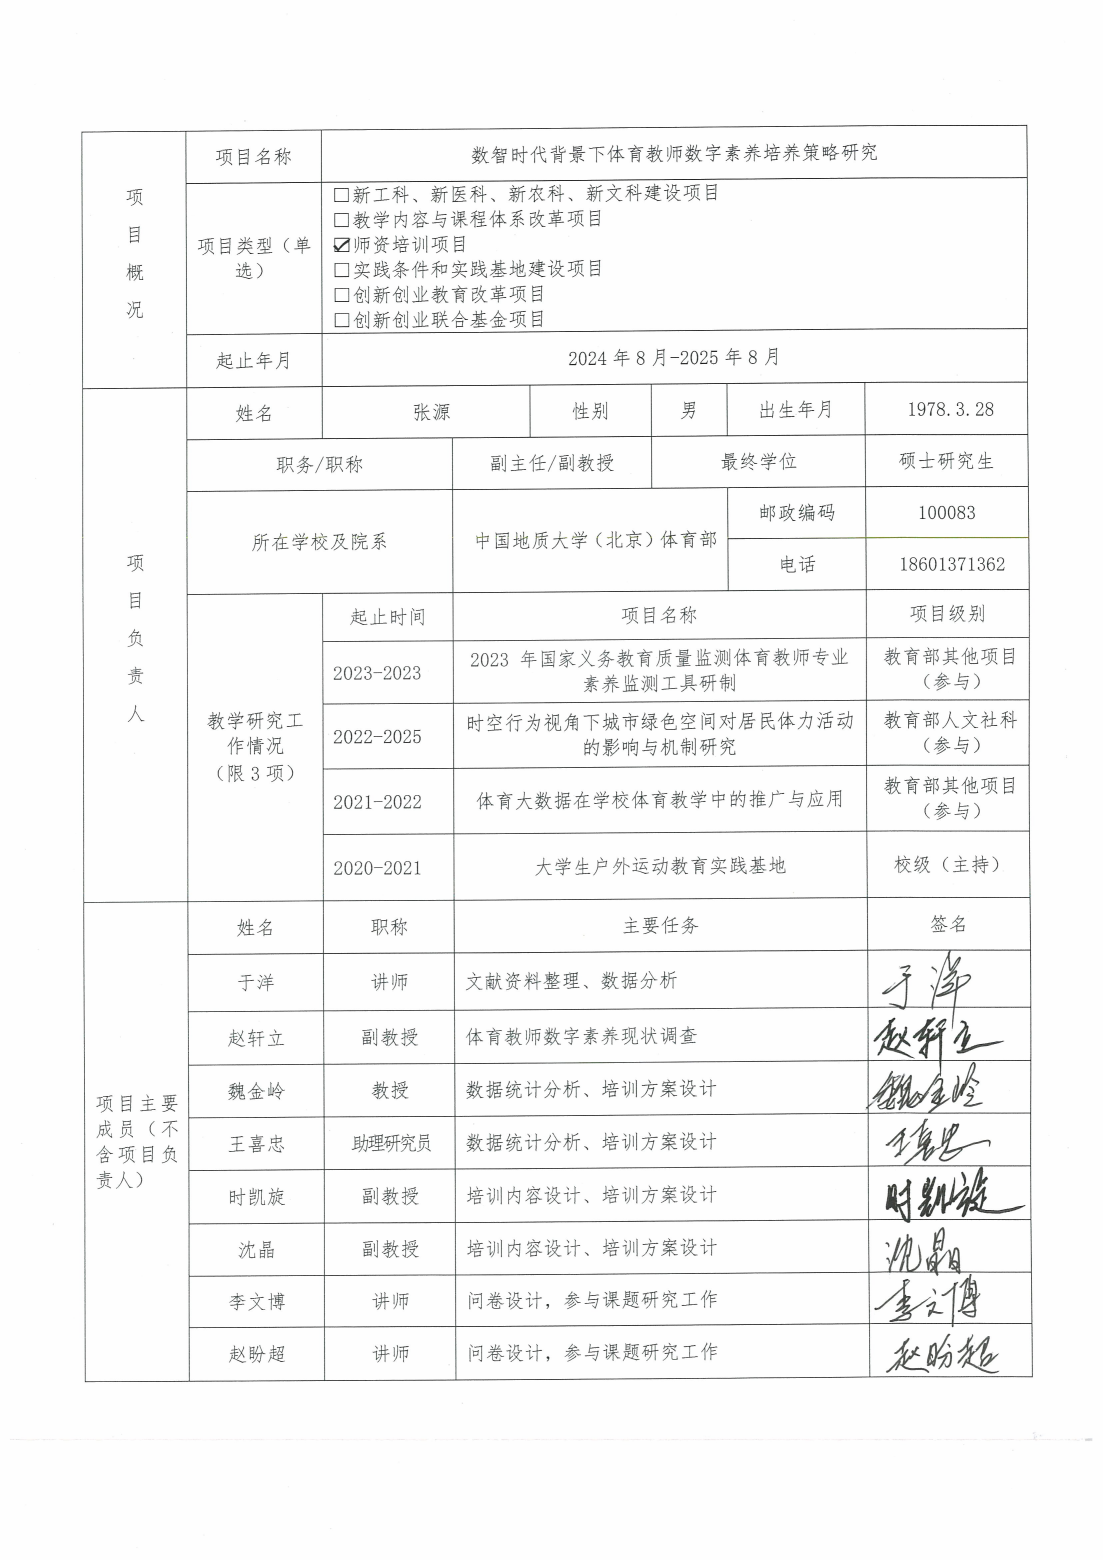 项目概况
项目名称
数智时代背景下体育教师数字素养培养策略研究
项目类型（单
选）
□新工科、新医科、新农科、新文科建设项目
□教学内容与课程体系改革项目
☑师资培训项目
□实践条件和实践基地建设项目
□创新创业教育改革项目
□创新创业联合基金项目
起止年月
2024年8月-2025年8月
项目负责人
姓名 张源 性别 男 出生年月 1978.3.28
职务/职称 副主任/副教授 最终学位 硕士研究生
所在学校及院系 中国地质大学（北京）体育部
邮政编码 100083
电话 18601371362
教学研究工
作情况
（限3项）
起止时间 项目名称 项目级别
2023-2023
2023 年国家义务教育质量监测体育教师专业
素养监测工具研制
教育部其他项目
（参与）
2022-2025
时空行为视角下城市绿色空间对居民体力活动
的影响与机制研究
教育部人文社科
（参与）
2021-2022
体育大数据在学校体育教学中的推广与应用
教育部其他项目
（参与）
2020-2021 大学生户外运动教育实践基地 校级（主持）
项目主要
成员（不
含项目负
责人）
姓名 职称 主要任务 签名
于洋 讲师 文献资料整理、数据分析 于洋
赵轩立 副教授 体育教师数字素养现状调查 赵轩立
魏金岭 教授 数据统计分析、培训方案设计 魏金岭
王喜忠 助理研究员 数据统计分析、培训方案设计 王喜忠
时凯旋 副教授 培训内容设计、培训方案设计 时凯旋
沈晶 副教授 培训内容设计、培训方案设计 沈晶
李文博 讲师 问卷设计，参与课题研究工作 李文博
赵盼超 讲师 问卷设计，参与课题研究工作 赵盼超